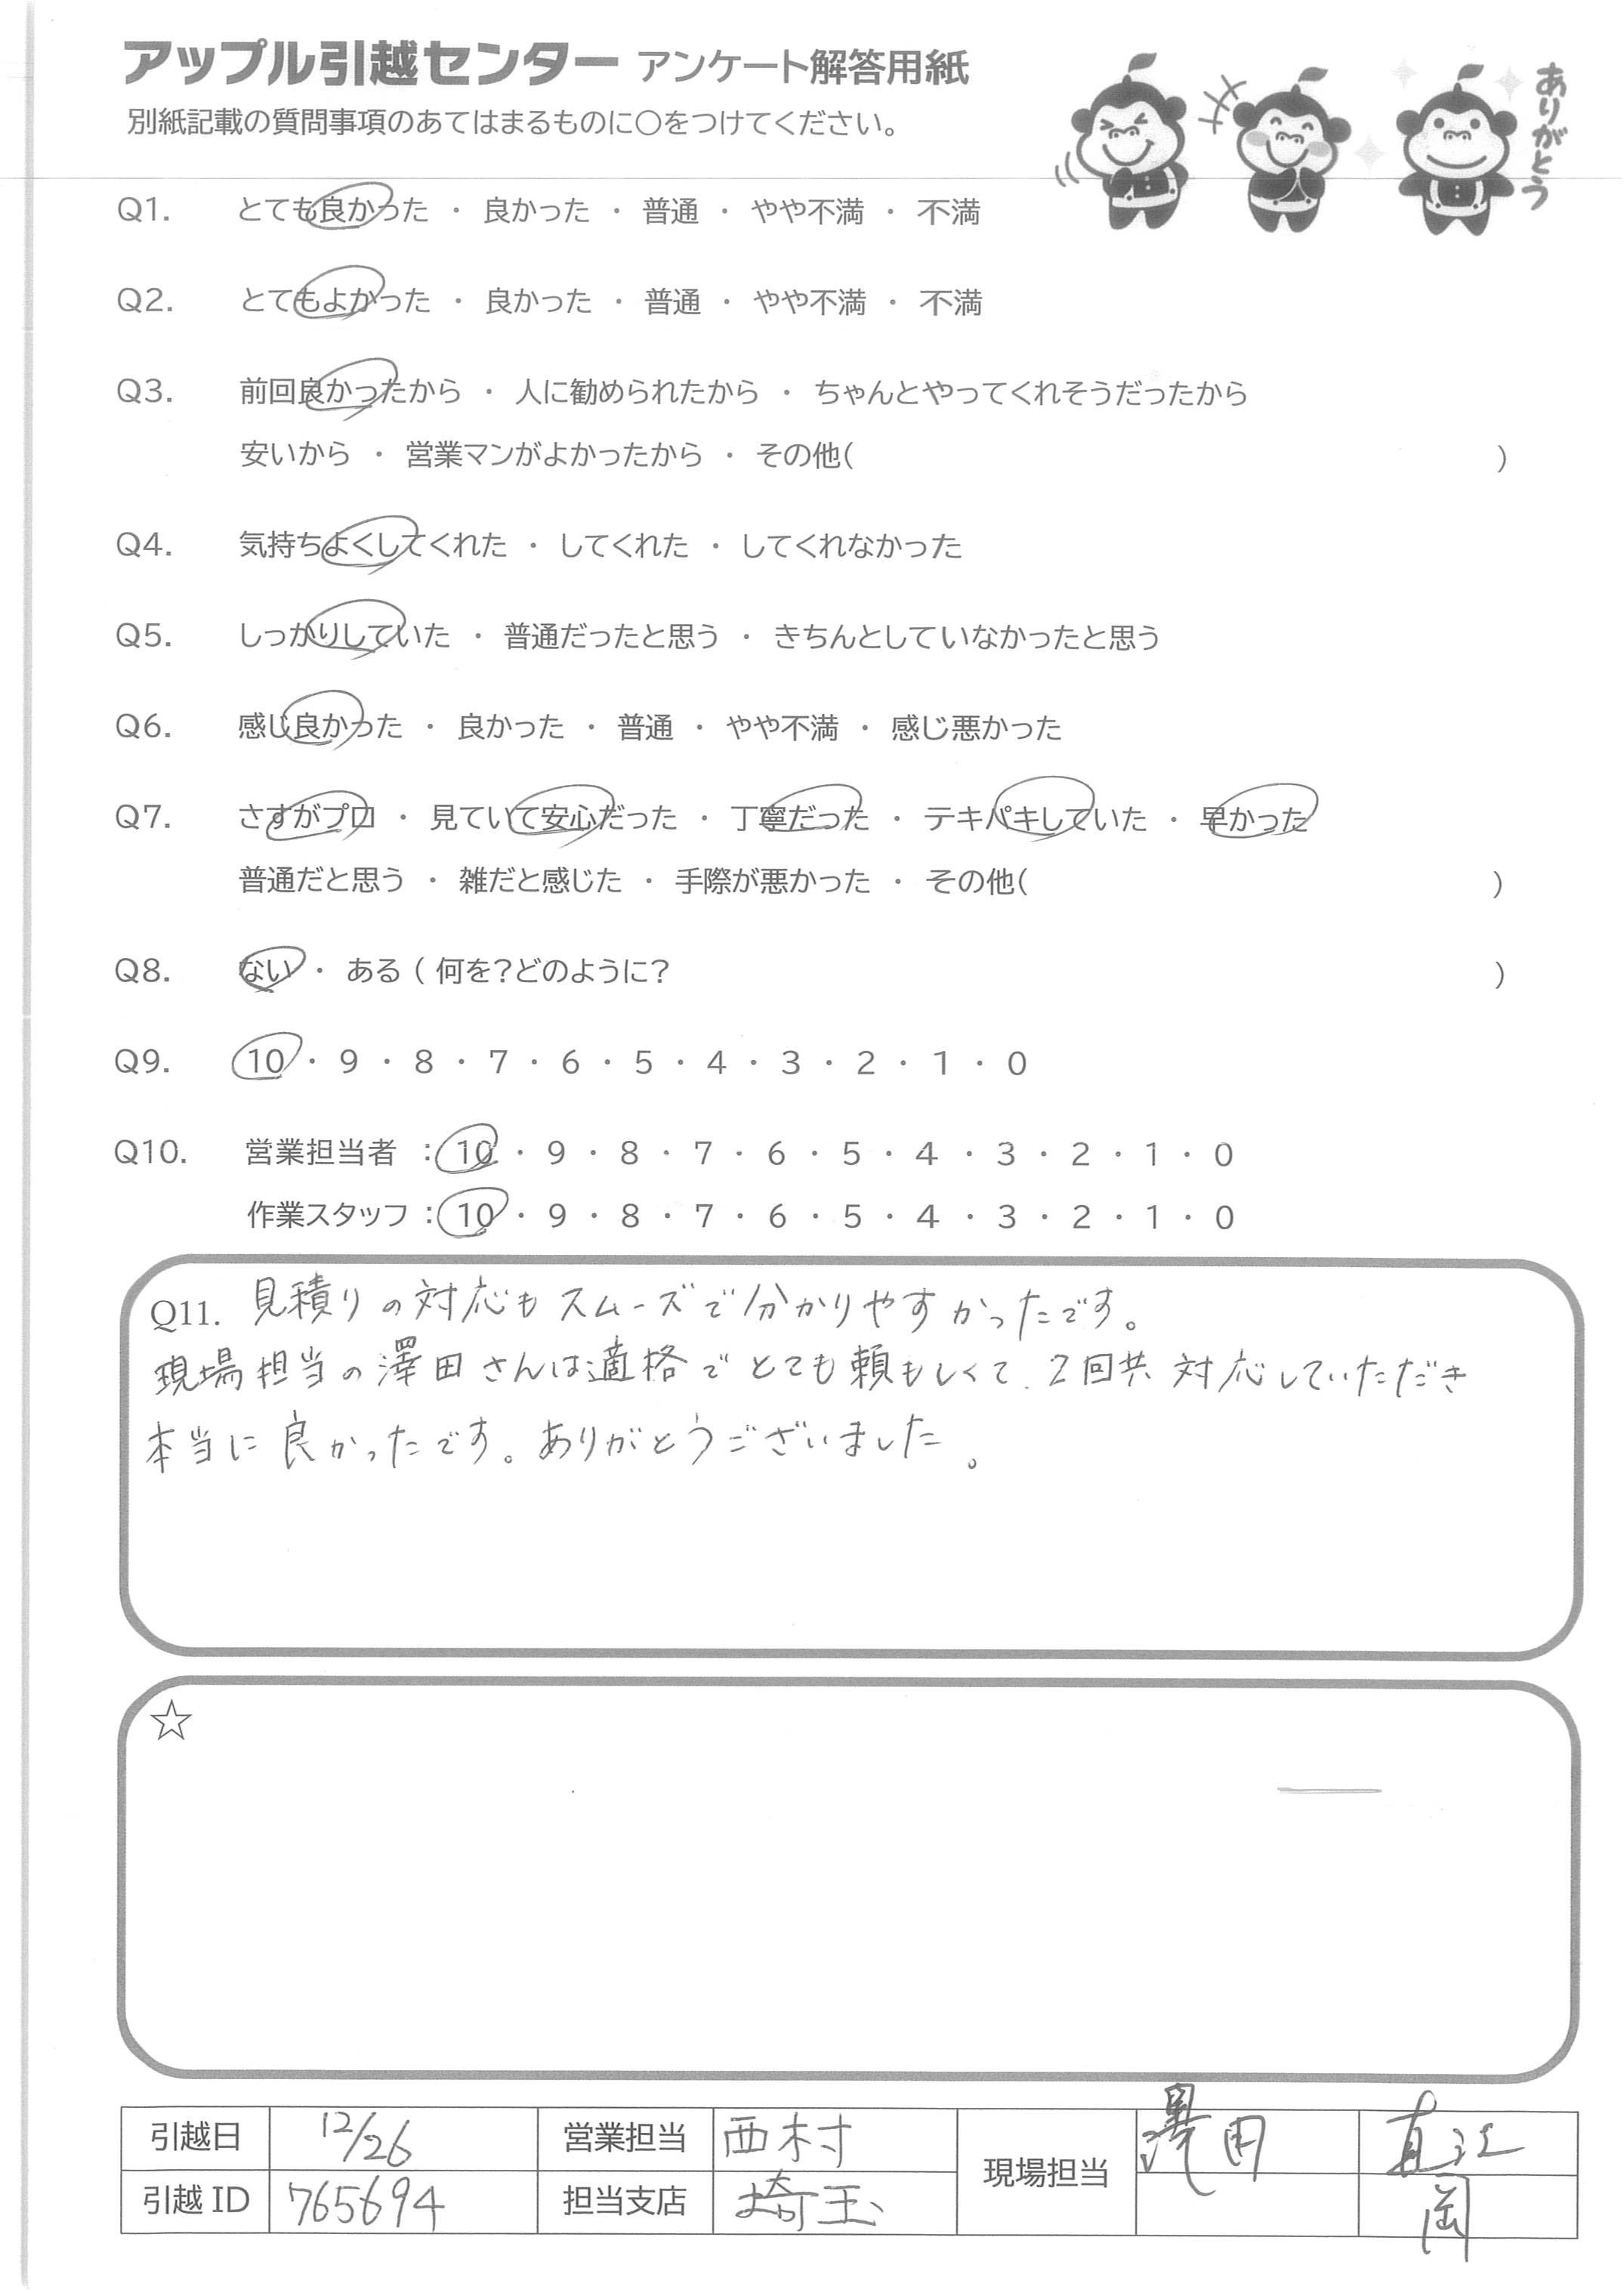 アップル引越センター アンケート解答用紙
ありがとう
別紙記載の質問事項のあてはまるものに〇をつけてください。
Q1. とても良かった ・ 良かった ・ 普通 ・ やや不満 ・ 不満
Q2. とてもよかった ・ 良かった ・ 普通 ・ やや不満 ・ 不満
Q3. 前回良かったから ・ 人に勧められたから ・ ちゃんとやってくれそうだったから
安いから ・ 営業マンがよかったから ・ その他( )
Q4. 気持ちよくしてくれた ・ してくれた ・ してくれなかった
Q5. しっかりしていた ・ 普通だったと思う ・ きちんとしていなかったと思う
Q6. 感じ良かった ・ 良かった ・ 普通 ・ やや不満 ・ 感じ悪かった
Q7. さすがプロ ・ 見ていて安心だった ・ 丁寧だった ・ テキパキしていた ・ 早かった
普通だと思う ・ 雑だと感じた ・ 手際が悪かった ・ その他( )
Q8. ない ・ ある ( 何を?どのように? )
Q9. 10 ・ 9 ・ 8 ・ 7 ・ 6 ・ 5 ・ 4 ・ 3 ・ 2 ・ 1 ・ 0
Q10. 営業担当者 : 10 ・ 9 ・ 8 ・ 7 ・ 6 ・ 5 ・ 4 ・ 3 ・ 2 ・ 1 ・ 0
作業スタッフ : 10 ・ 9 ・ 8 ・ 7 ・ 6 ・ 5 ・ 4 ・ 3 ・ 2 ・ 1 ・ 0
Q11. 見積りの対応もスムーズで分かりやすかったです。
現場担当の澤田さんは適格でとても頼もしくて、2回共対応していただき
本当に良かったです。ありがとうございました。
☆
引越日 12/26 営業担当 西村 現場担当 澤田 直江
引越ID 765694 担当支店 埼玉 岡